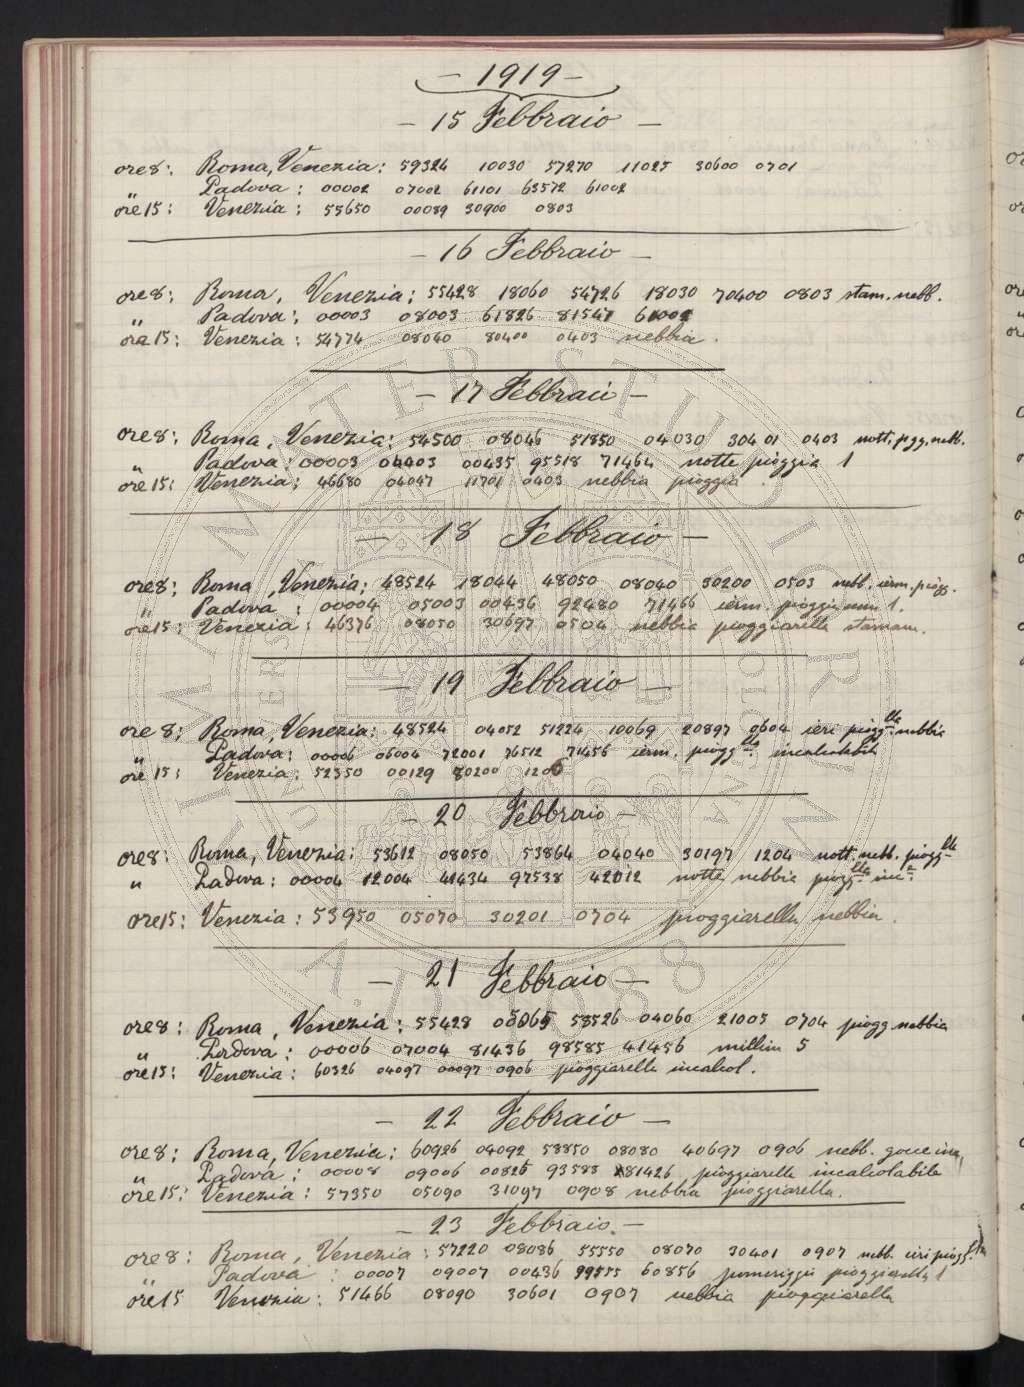 - 1919 -
- 15 Febbraio -
ore 8: Roma, Venezia: 59324 10030 57270 11025 30600 0701
" Padova: 00002 07002 61101 63572 61002
ore 15: Venezia: 55650 00089 30900 0803
- 16 Febbraio -
ore 8: Roma, Venezia: 55428 18060 54726 18030 70400 0803 stam. nebb.
" Padova: 00003 08003 61826 81547 61002
ore 15: Venezia: 54774 08040 80400 0403 nebbia.
- 17 Febbraio -
ore 8: Roma, Venezia: 54500 08046 51850 04030 30401 0403 nott. pgg. nebb.
" Padova: 00003 04403 00435 95518 71464 notte pioggia 1
ore 15: Venezia: 46680 04047 11701 0403 nebbia pioggia.
- 18 Febbraio -
ore 8: Roma, Venezia: 48524 18044 48050 08040 30200 0503 nebb. ierm. piogg.
" Padova: 00004 05003 00436 92480 71466 ierm. pioggia mm 1.
ore 15: Venezia: 46376 08050 30697 0504 nebbia pioggiarella stamam.
- 19 Febbraio -
ore 8: Roma, Venezia: 48524 04052 51224 10069 20897 0604 ieri piogg.lla nebbia
" Padova: 00006 06004 72001 76512 71456 ierm. piogg.lla incalcolabile
ore 15: Venezia: 52350 00129 80200 1206
- 20 Febbraio -
ore 8: Roma, Venezia: 53612 08050 53864 04040 30197 1204 nott. nebb. piogg.lla
" Padova: 00004 12004 41434 97538 42012 notte nebbia piogg.lla inc.e
ore 15: Venezia: 53950 05070 30201 0704 pioggiarella nebbia.
- 21 Febbraio -
ore 8: Roma, Venezia: 55428 05065 58526 04060 21005 0704 piogg nebbia
" Padova: 00006 07004 81436 98585 41456 millim 5
ore 15: Venezia: 60326 04097 00097 0906 pioggiarella incalcol.
- 22 Febbraio -
ore 8: Roma, Venezia: 60926 04092 58850 08080 40697 0906 nebb. gocce
" Padova: 00008 09006 00826 93588 81426 pioggiarella incalcolabile
ore 15: Venezia: 57350 05090 31097 0908 nebbia pioggiarella.
- 23 Febbraio -
ore 8: Roma, Venezia: 57220 08086 55550 08070 30401 0907 nebb. ieri piogg.lla
" Padova: 00007 09007 00436 99555 60856 pomeriggio pioggiarella 1
ore 15 Venezia: 51466 08090 30601 0907 nebbia pioggiarella
ALMA MATER STUDIORUM
A.D. 1088